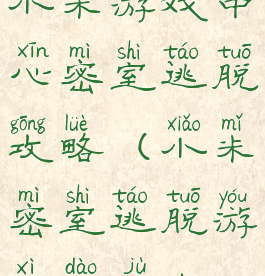 游戏中
xīn mì shì táo tuō
心密室逃脱
gōng lüè xiǎo mǐ
攻略（小米
mì shì táo tuō yóu
密室逃脱游
xì dào jù